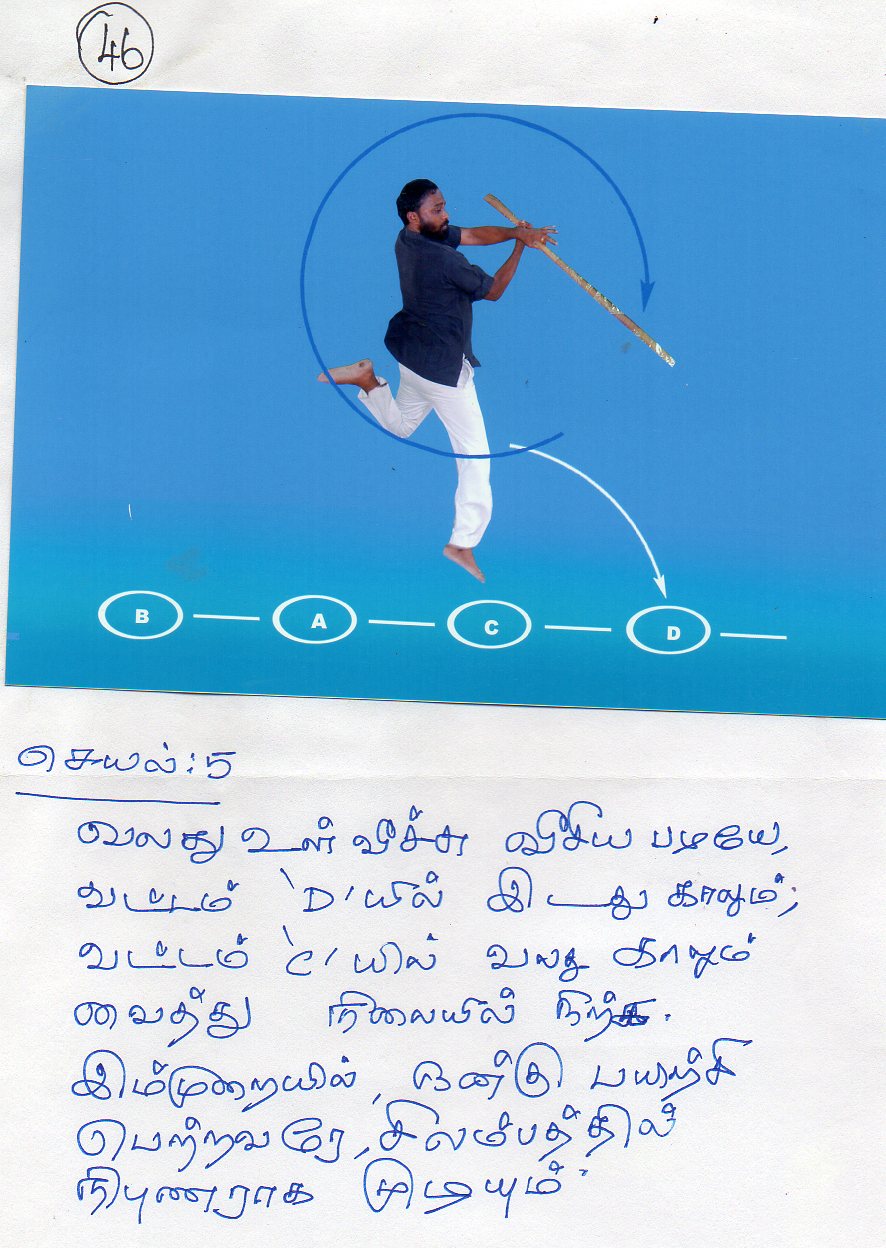 46
B A C D
செயல்: 5
வலது உள் வீச்சு வீசிய படியே,
வட்டம் 'D' யில் இடது காலும்;
வட்டம் 'C' யில் வலது காலும்
வைத்து நிலையில் நிற்க.
இம்முறையில், நன்கு பயிற்சி
பெற்றவரே, சிலம்பத்தில்
நிபுணராக முடியும்.